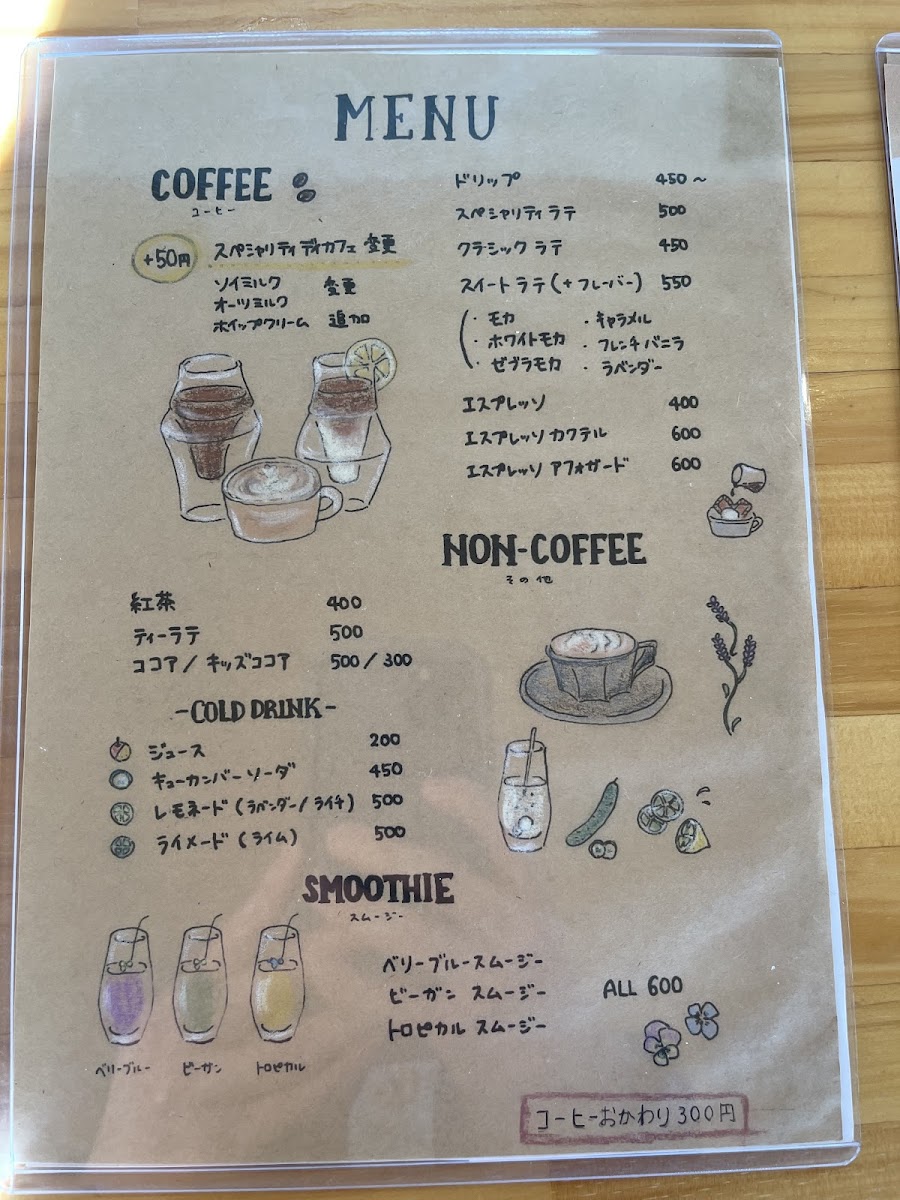 MENU
COFFEE
コーヒー
+50円 スペシャリティ ディカフェ 変更
ソイミルク 変更
オーツミルク
ホイップクリーム 追加
ドリップ 450～
スペシャリティ ラテ 500
クラシック ラテ 450
スイート ラテ (+ フレーバー) 550
・モカ ・キャラメル
・ホワイトモカ ・フレンチバニラ
・ゼブラモカ ・ラベンダー
エスプレッソ 400
エスプレッソ カクテル 600
エスプレッソ アフォガード 600
NON-COFFEE
その他
紅茶 400
ティーラテ 500
ココア / キッズココア 500 / 300
-COLD DRINK-
ジュース 200
キューカンバーソーダ 450
レモネード (ラベンダー/ライチ) 500
ライメード (ライム) 500
SMOOTHIE
スムージー
ベリーブルースムージー
ビーガン スムージー ALL 600
トロピカル スムージー
ベリーブルー ビーガン トロピカル
コーヒーおかわり 300円